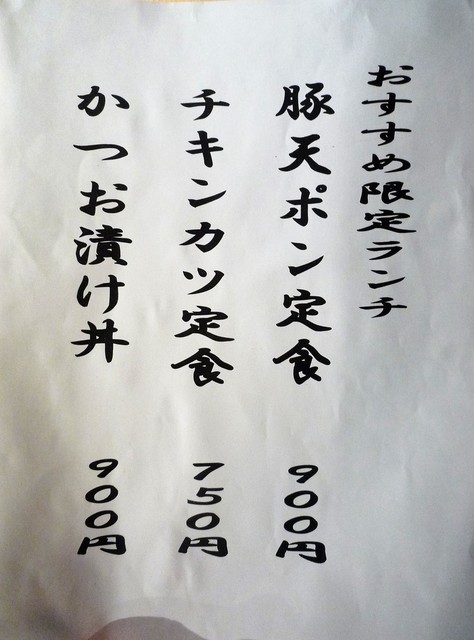 おすすめ限定ランチ
豚天ポン定食 900円
チキンカツ定食 750円
かつお漬け丼 900円